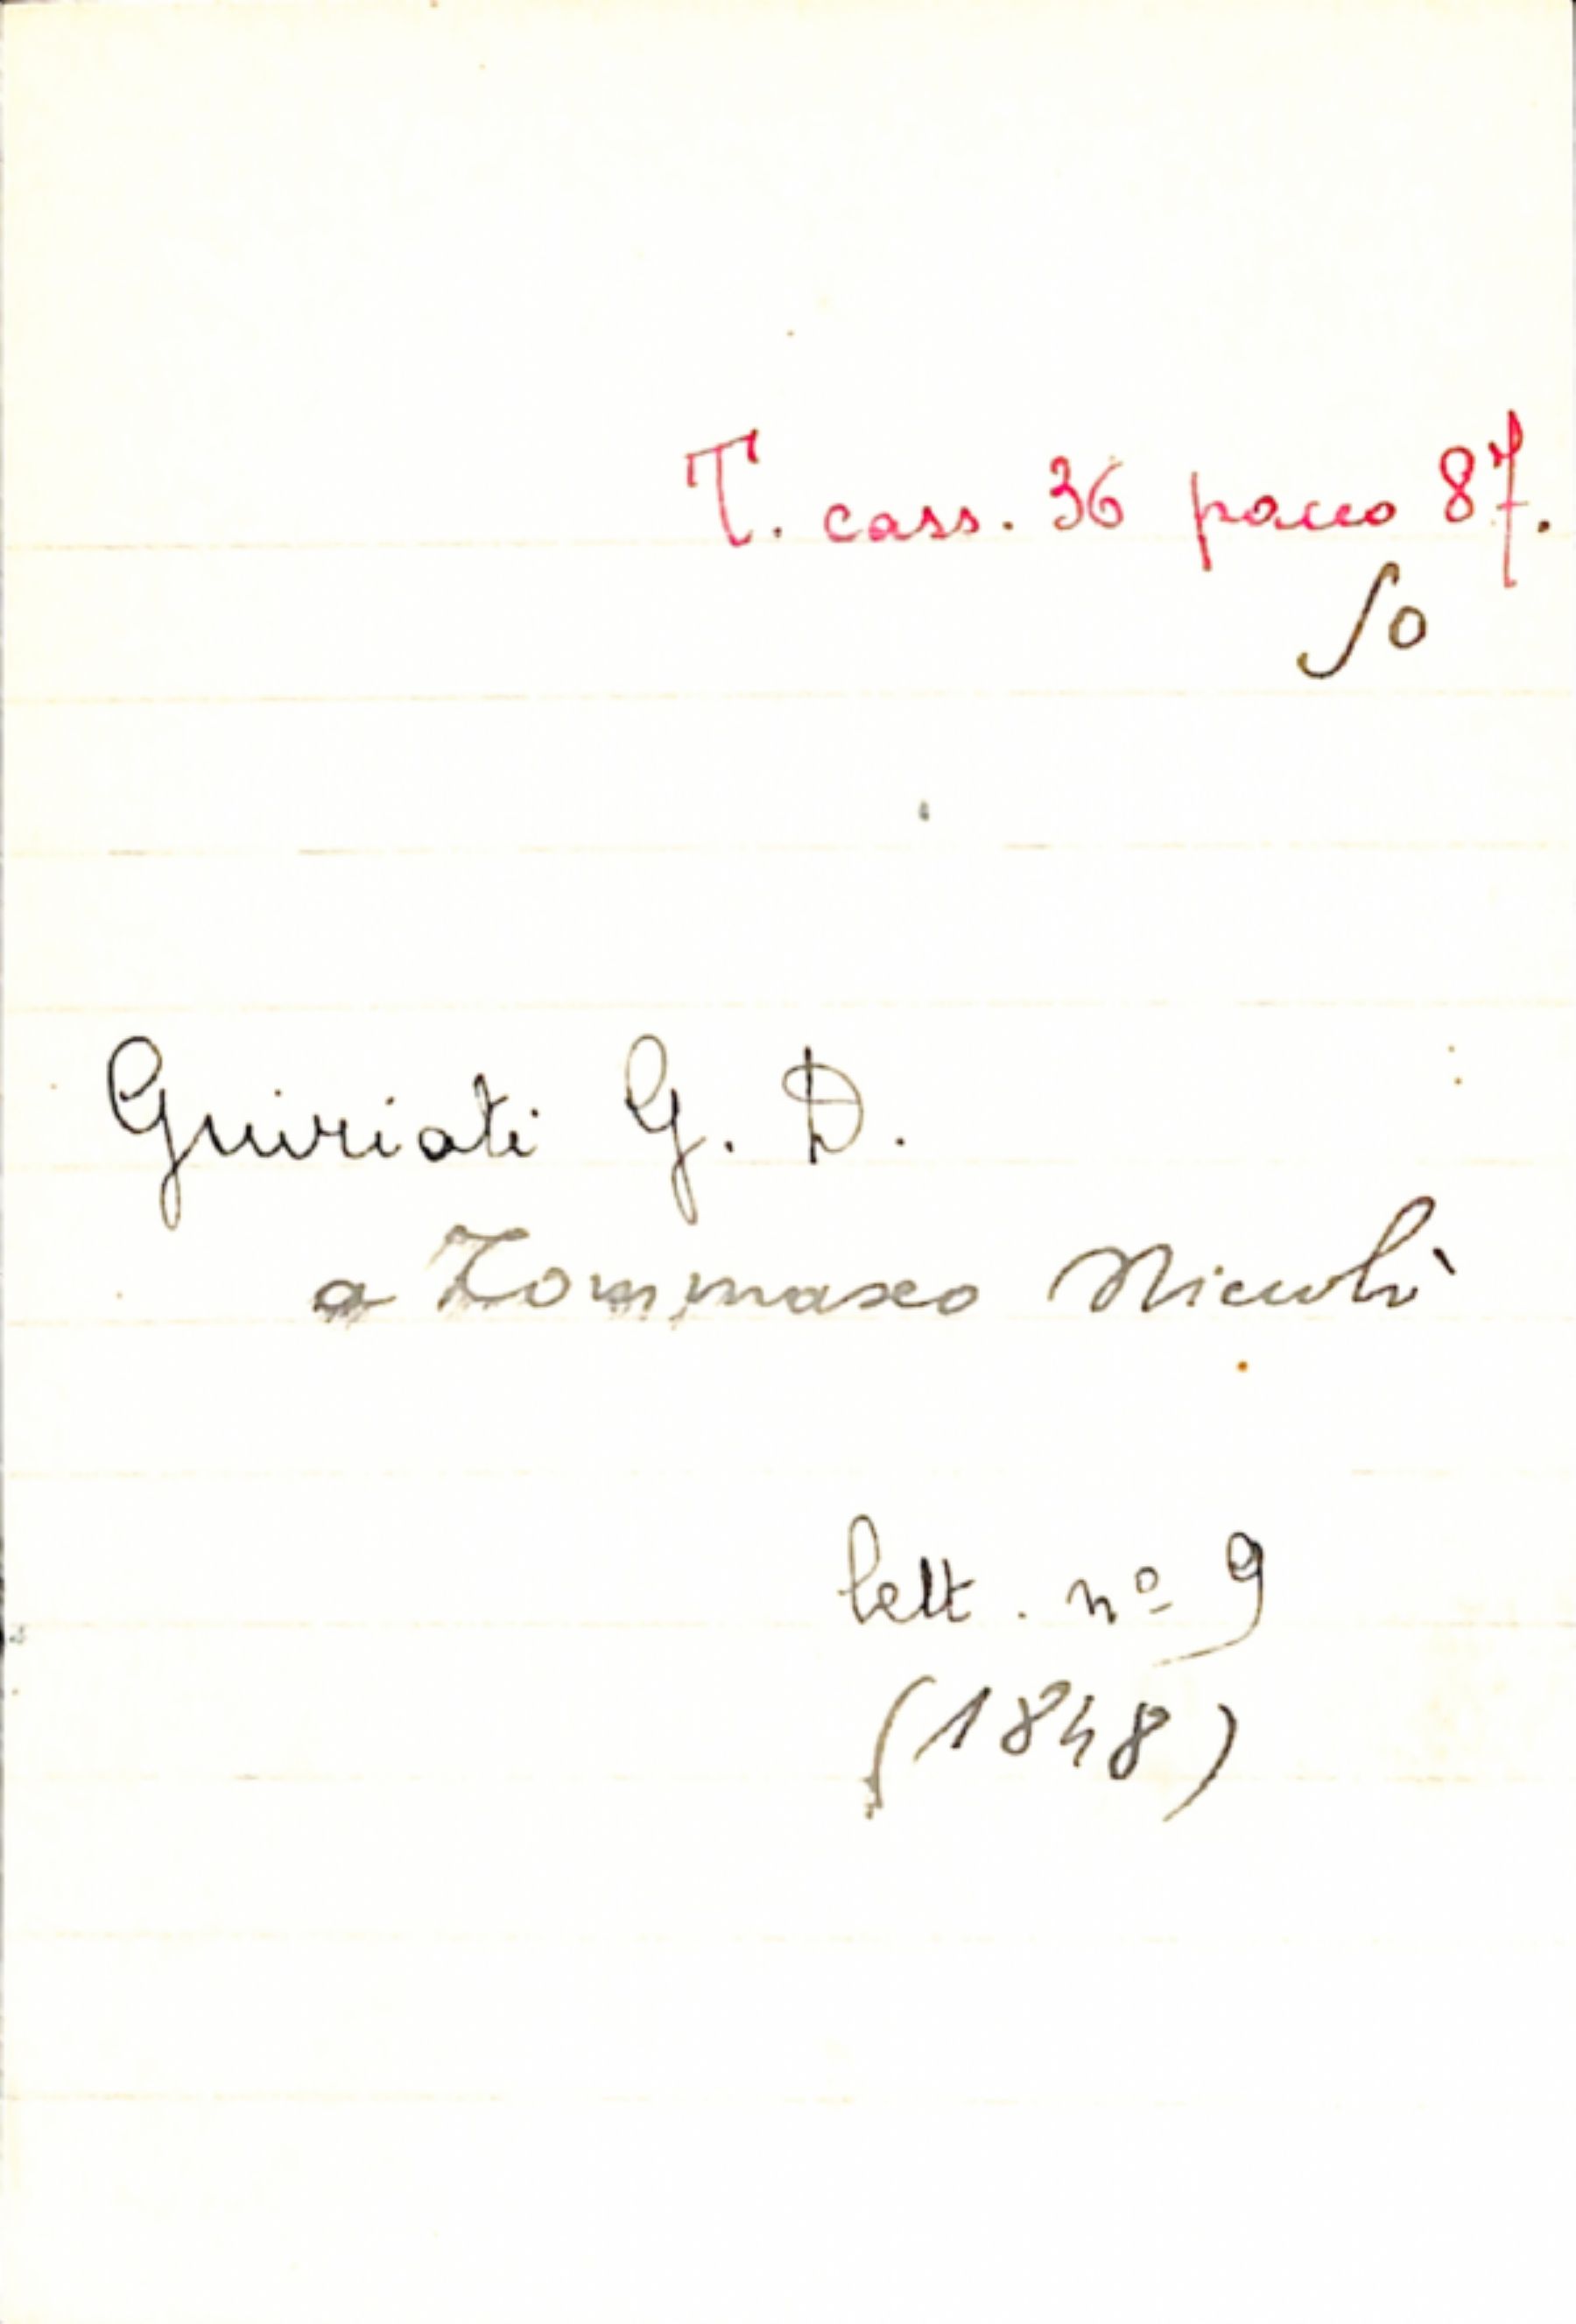 T. cass. 36 pacco 87.
50
Guiriati G. D.
a Tommaseo Niccolò
lett. nº 9
(1848)